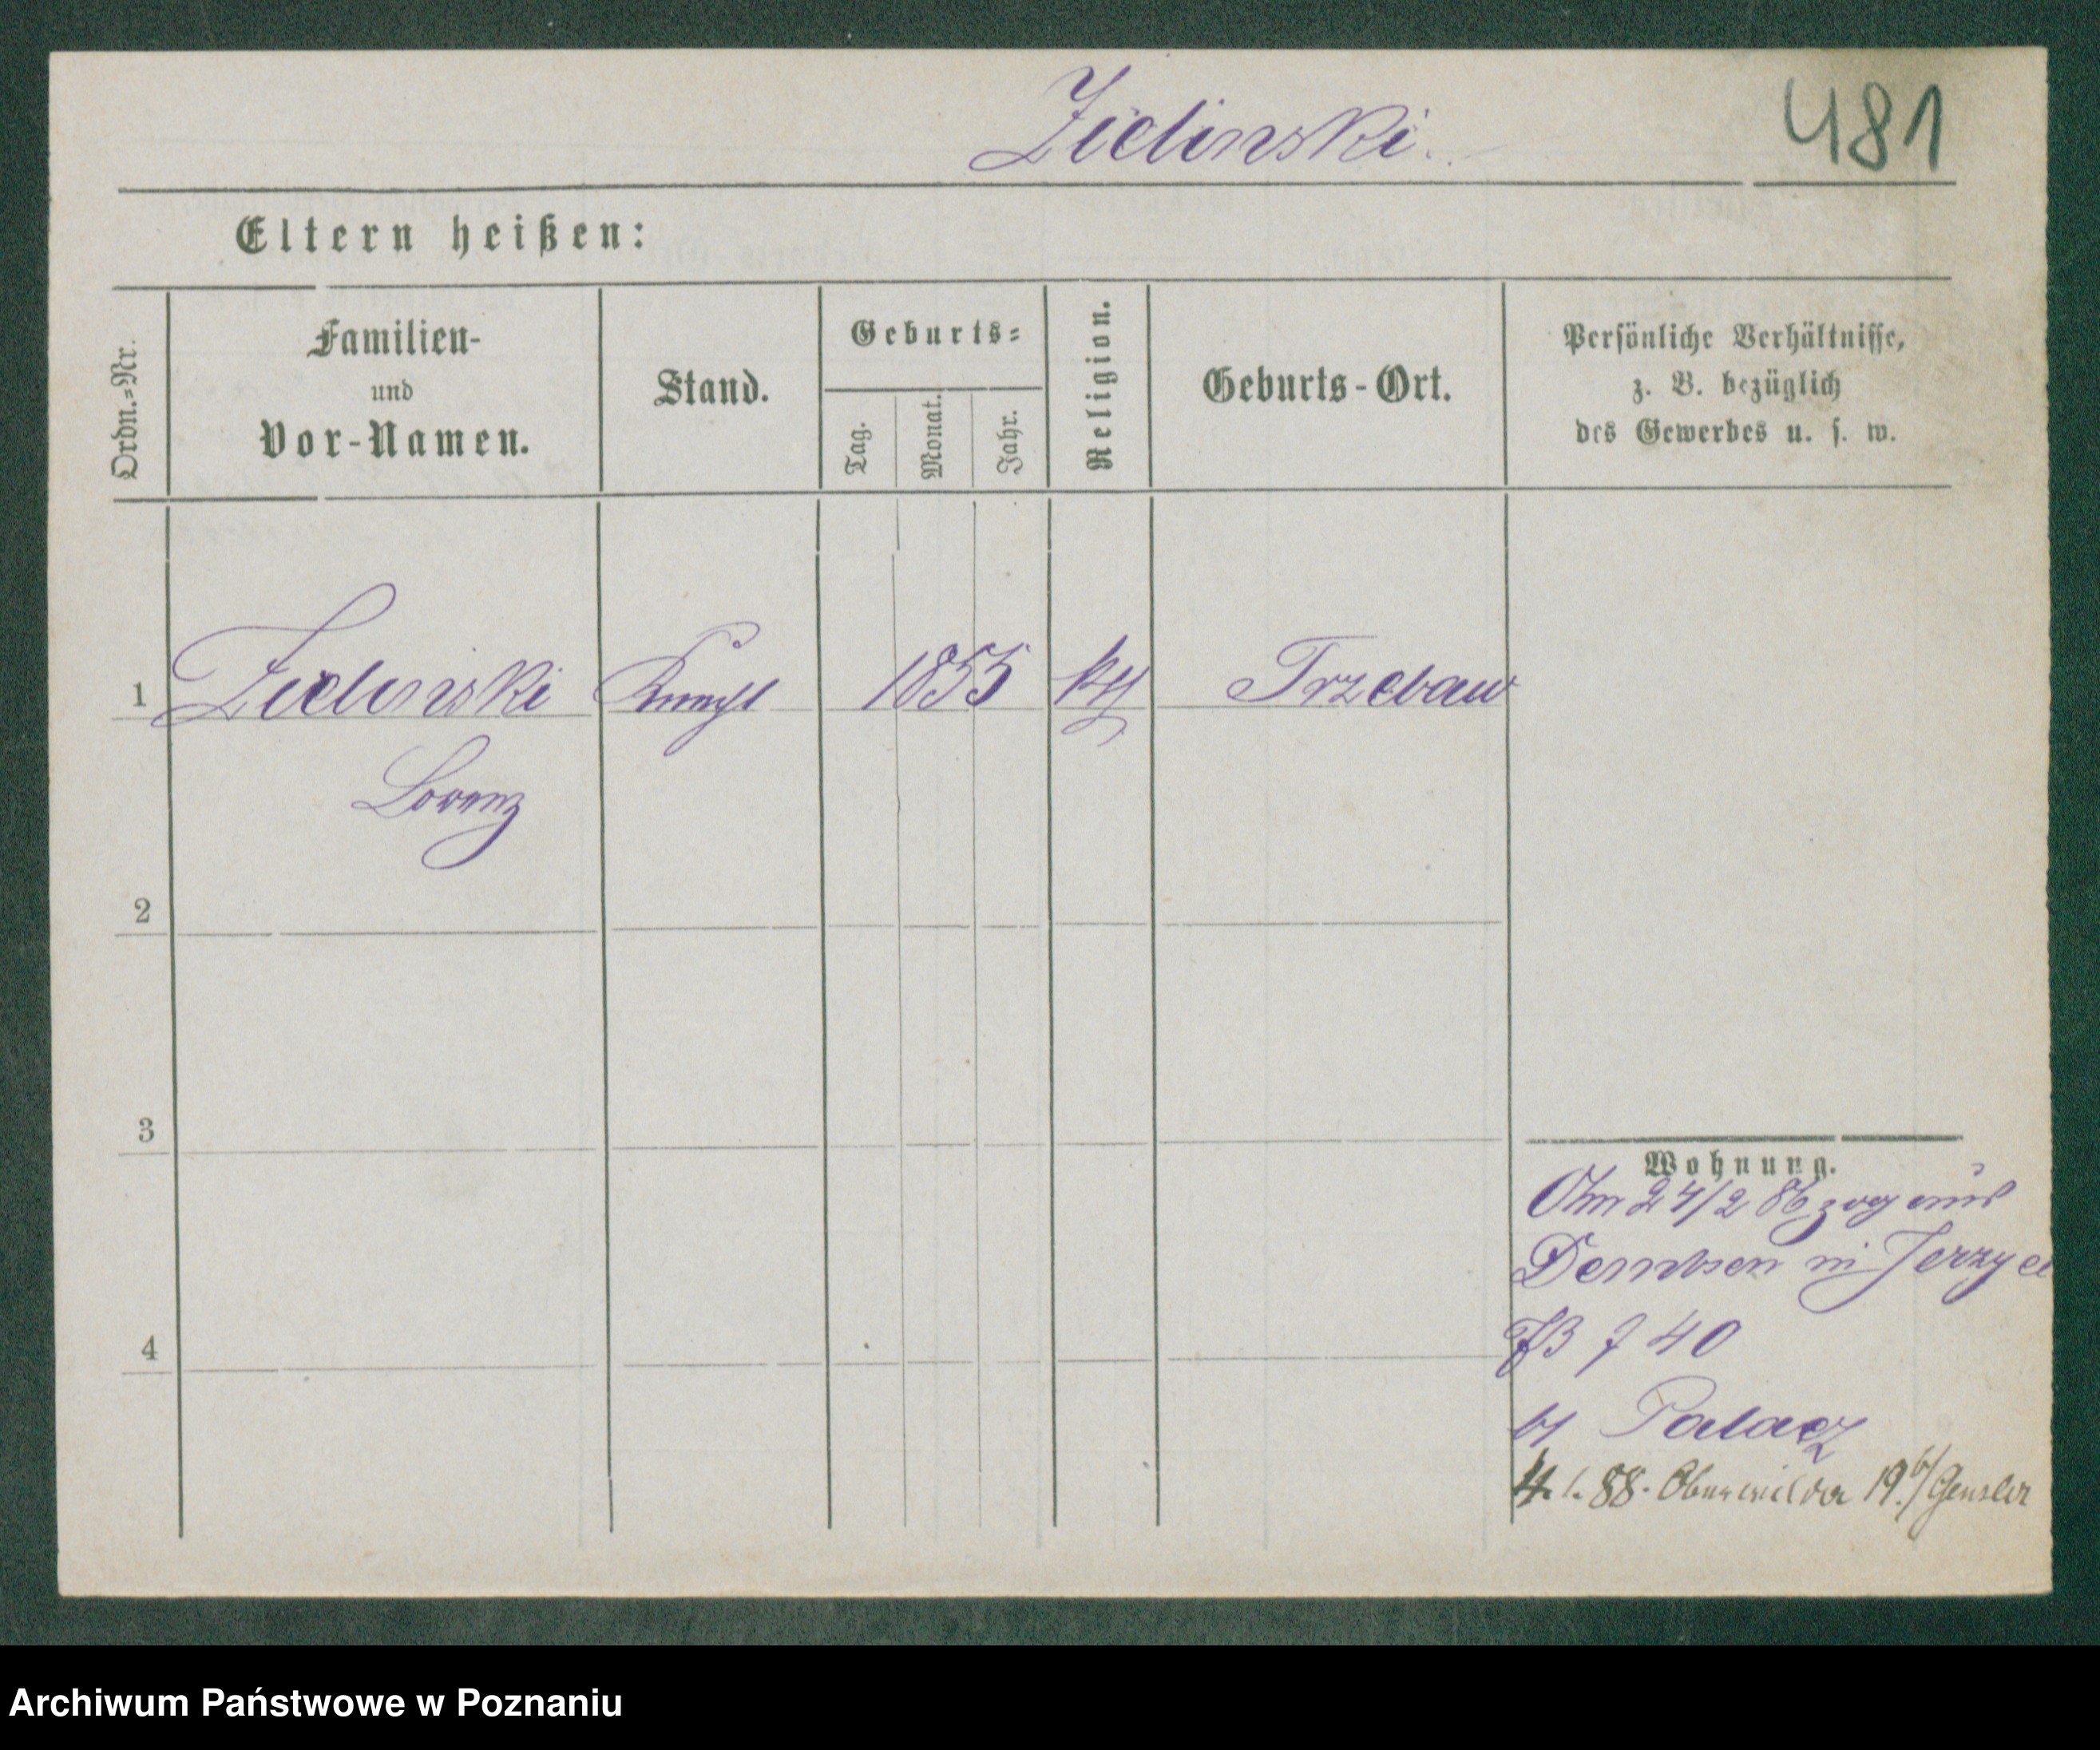 Zielinski
481
Eltern heißen:
Ordn.=Nr.
Familien-
und
Vor-Namen.
Stand.
Geburts=
Tag.
Monat.
Jahr.
Religion.
Geburts-Ort.
Persönliche Verhältnisse,
z. B. bezüglich
des Gewerbes u. s. w.
1 Zielinski Knecht 1855 kth Trzebaw
Lorenz
2
3
4
Wohnung.
Am 24/2 86 zog aus
Dembsen in Jerzyce
40
Palacz
88. Oberwilda 19
Archiwum Państwowe w Poznaniu